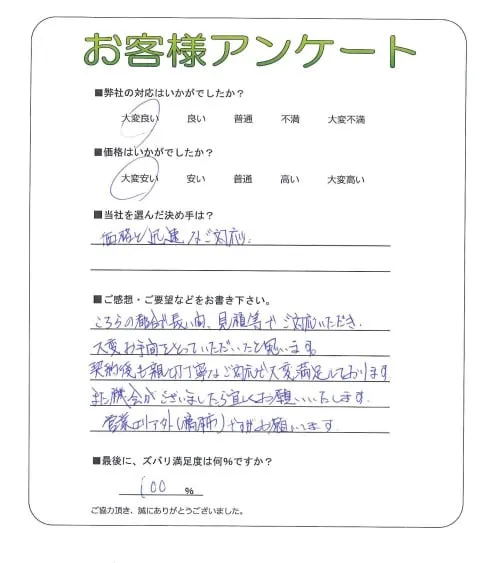 お客様アンケート
■弊社の対応はいかがでしたか？
大変良い 良い 普通 不満 大変不満
■価格はいかがでしたか？
大変安い 安い 普通 高い 大変高い
■当社を選んだ決め手は？
価格と迅速なご対応
■ご感想・ご要望などをお書き下さい。
こちらの都合で長い間、見積等でご対応いただき、
大変お手間をとっていただいたと思います。
契約後も親切丁寧なご対応で大変満足しております
また機会がございましたら宜しくお願いいたします。
営業エリア外(市)ですがお願いします.
■最後に、ズバリ満足度は何％ですか？
100 %
ご協力頂き、誠にありがとうございました。